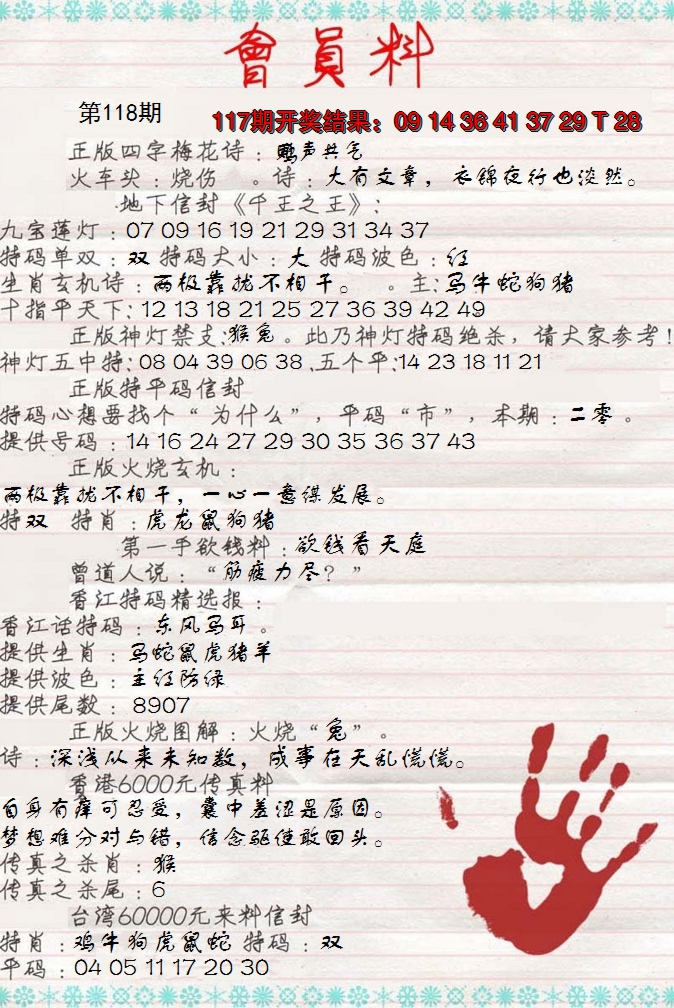 會員料
第118期
117期开奖结果：09 14 36 41 37 29 T 28
正版四字梅花诗：鸥声共气
火车头：烧伤 。诗：大有文章，衣锦夜行也淡然。
地下信封《千王之王》：
九宝莲灯：07 09 16 19 21 29 31 34 37
特码单双：双 特码大小：大 特码波色：红
生肖玄机诗：两极靠拢不相干。 。主：马牛蛇狗猪
十指平天下：12 13 18 21 25 27 36 39 42 49
正版神灯禁支：猴兔。此乃神灯特码绝杀，请大家参考！
神灯五中特：08 04 39 06 38 .五个平：14 23 18 11 21
正版特平码信封
特码心想要找个“为什么”，平码“市”，本期：二零。
提供号码：14 16 24 27 29 30 35 36 37 43
正版火烧玄机：
两极靠拢不相干，一心一意谋发展。
特双 特肖：虎龙鼠狗猪
第一手欲钱料：欲钱看天庭
曾道人说：“筋疲力尽？”
香江特码精选报：
香江话特码：东风马耳。
提供生肖：马蛇鼠虎猪羊
提供波色：主红防绿
提供尾数：8907
正版火烧图解：火烧“兔”。
诗：深浅从来未知数，成事在天乱慌慌。
香港6000元传真料
自身有痒可忍受，囊中羞涩是原因。
梦想难分对与错，信念驱使敢回头。
传真之杀肖：猴
传真之杀尾：6
台湾60000元来料信封
特肖：鸡牛狗虎鼠蛇 特码：双
平码：04 05 11 17 20 30